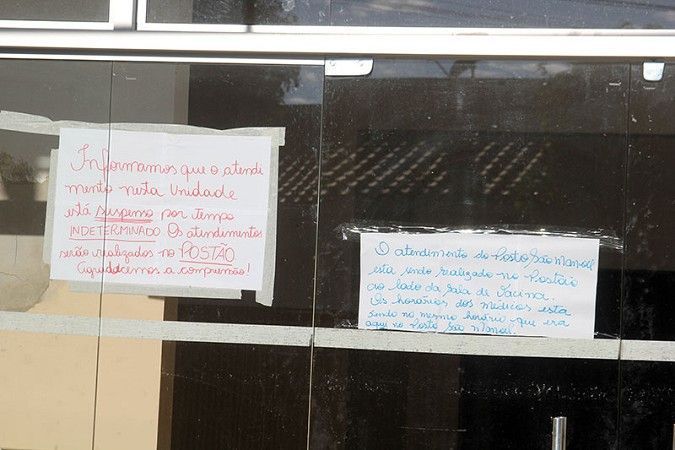 Informamos que o atendi
mento nesta Unidade
está suspenso por tempo
INDETERMINADO. Os atendimentos
serão realizados no POSTÃO
Agradecemos a compreensão!
O atendimento do Posto São Manoel
esta sendo realizado no Postão
ao lado da sala de Vacina.
Os horários dos médicos esta
sendo no mesmo horário que era
aqui no Posto São Manoel.